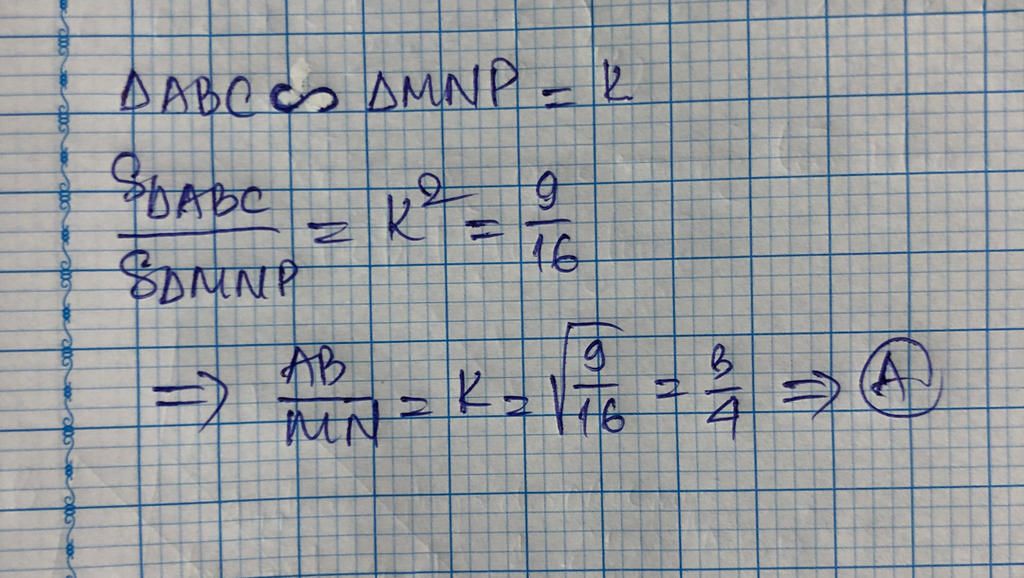 ΔABC ∽ ΔMNP = K
SΔABC / SΔMNP = K² = 9/16
=> AB/MN = K = √(9/16) = 3/4 => A